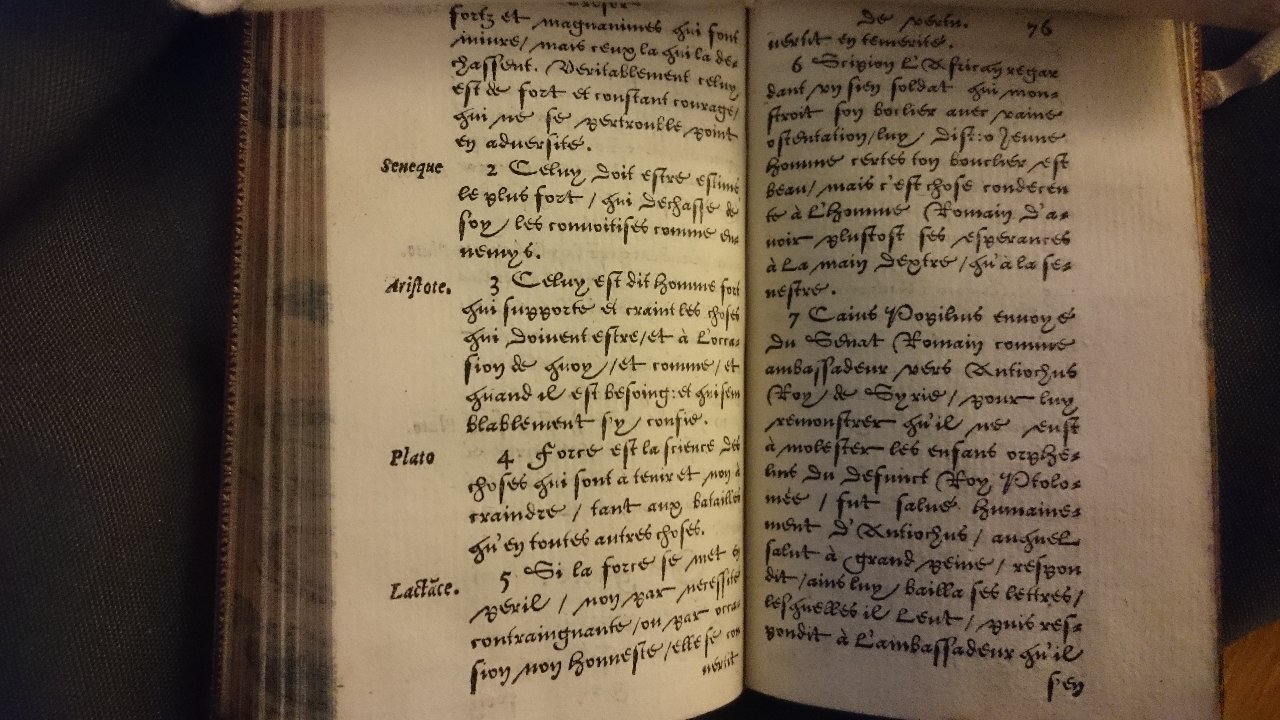 Tresor
fortz et magnanimes qui font
iniure/ mais ceux la qui la de-
chassent. Veritablement celuy
est de fort et constant courage/
qui ne se pertrouble point
en adversite.
Seneque
2 Celuy doit estre estimé
le plus fort / qui dechasse de
soy / les convoitises comme en-
nemys.
Aristote.
3 Celuy est dit homme fort
qui supporte et craint les choses
qui doivent estre/et à l'occa-
sion de quoy /et comme/et
quand il est besoing: et qui sem
blablement s'y confie.
Plato
4 Force est la science des
choses qui sont a tenir et non à
craindre / tant aux batailles
qu'en toutes autres choses.
Lactāce.
5 Si la force se met en
peril / non par necessité
contraingnante/ou par occa-
sion non honneste/elle se con
uertit
de vertu. 76
uertit en temerité.
6 Scipion l'Affrican regar
dant vn sien soldat qui mon-
stroit son boclier auec vaine
ostentation/luy dist: o Jeune
homme certes ton bouclier est
beau/ mais c'est chose condecen
te à l'homme Romain d'a-
uoir plustost ses esperances
à la main dextre/qu'à la se-
nestre.
7 Caius Popilius enuoyé
du Senat Romain comme
ambassadeur vers Antiochus
Roy de Syrie / pour luy
remonstrer qu'il ne eust
à molester les enfans orphe-
lins du defunct Roy Ptolo-
mée / fut salué humaine-
ment d'Antiochus / auquel
salut à grand peine / respon
dit /ains luy bailla ses lettres/
lesquelles il leut / puis res-
pondit à l'ambassadeur qu'il
s'en